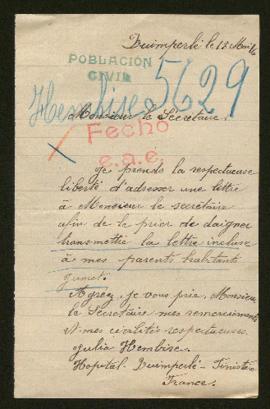 Quimperlé le 18 Mai 16
POBLACIÓN
CIVIL
5629
Hembise
Monsieur le Secrétaire.
Fecho
e.a.e.
Je prends la respectueuse
liberté d'adresser une lettre
à Monsieur le secrétaire
afin de le prier de daigner
transmettre la lettre incluse
à mes parents habitants
Jumet.
Agréez, je vous prie, Monsieur
le Secrétaire mes remerciements
et mes civilités respectueuses.
Julia Hembise.
Hopital. Quimperlé - Finistère
France.